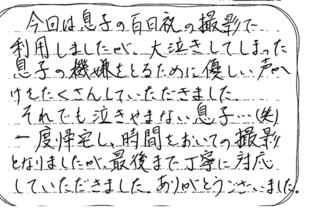 今回は息子の百日祝の撮影で
利用しましたが、大泣きしてしまった
息子の機嫌をとるために優しい声か
けをたくさんしていただきました。
それでも泣きやまない息子…(笑)
一度帰宅し、時間をおいての撮影
となりましたが、最後まで丁寧に対応
していただきました。ありがとうございました。